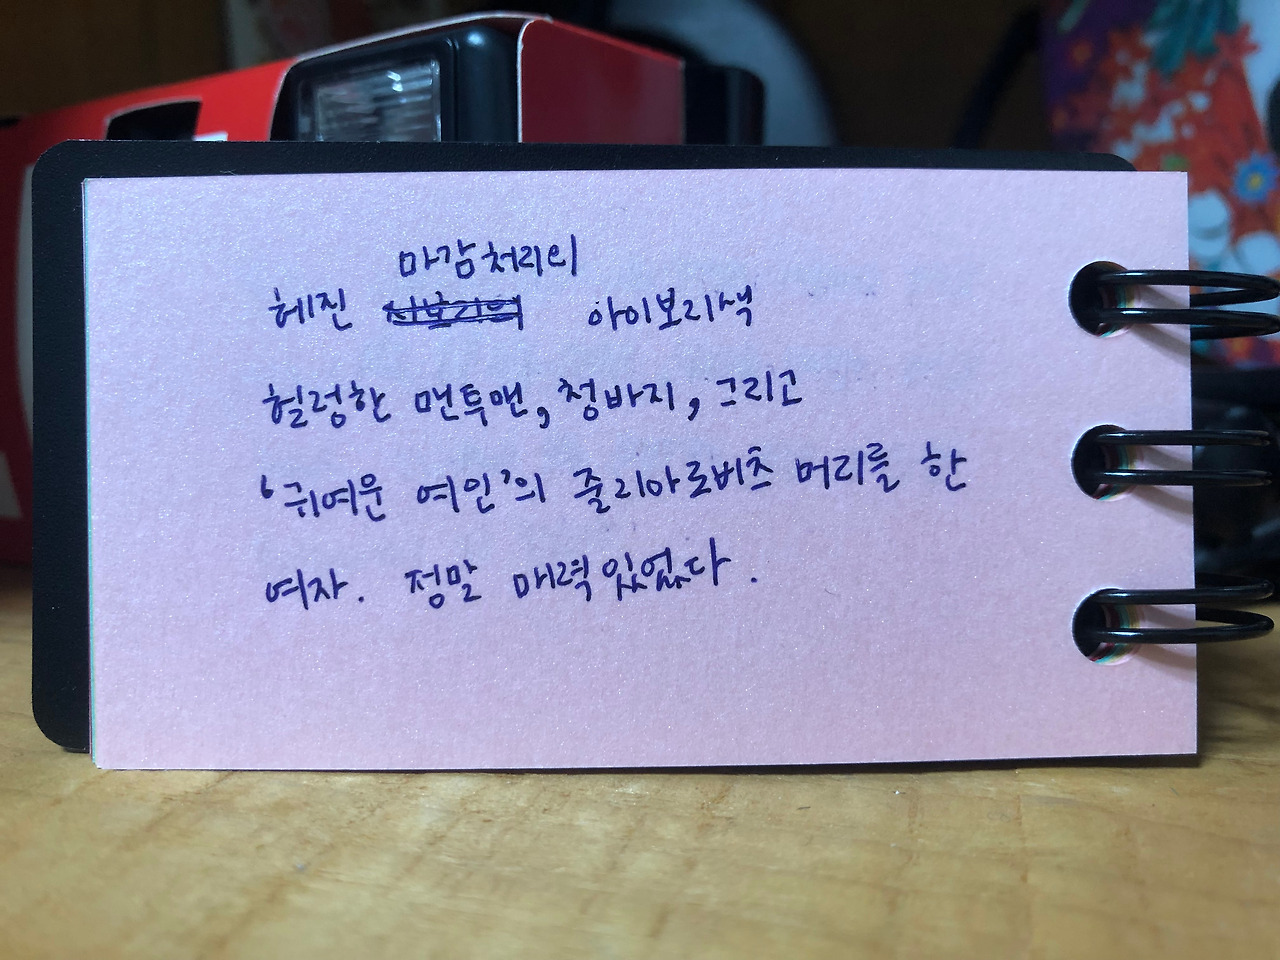 마감처리의
헤진 아이보리색
헐렁한 맨투맨, 청바지, 그리고
'귀여운 여인'의 줄리아로버츠 머리를 한
여자. 정말 매력있었다.